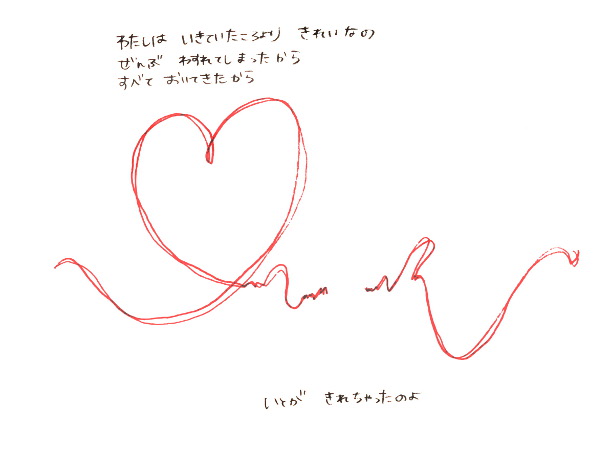 わたしは いきていたころより きれいなの
ぜんぶ わすれてしまったから
すべて おいてきたから
いとが きれちゃったのよ